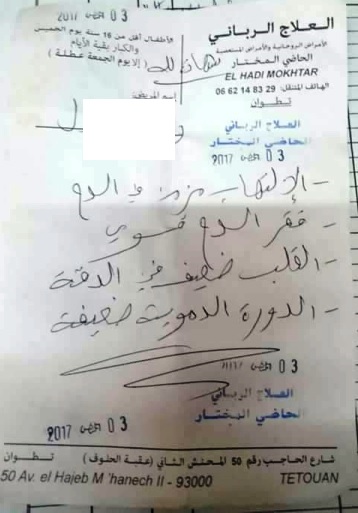 2017 03
العلاج الرباني
لأمراض الروحانية والأمراض المستعصية
الحاضي المختار
EL HADI MOKHTAR
الهاتف المتنقل: 29 83 14 62 06
تطوان
الأطفال أقل من 16 سنة يوم الخميس
والكبار بقية الأيام
( إلا يوم الجمعة عطلة )
إسم المريض
العلاج الرباني
الحاضي المختار
2017 03
- الإلتهاب مزمن في الدم
- فقر الدم قوي
- القلب ضعيف في الدقة
- الدورة الدموية ضعيفة
03
العلاج الرباني
الحاضي المختار
2017 03
شارع الحاجب رقم 50 المحنش الثاني (عقبة الحلوف) - تطوان
50 Av. el Hajeb M'hanech II - 93000 TETOUAN